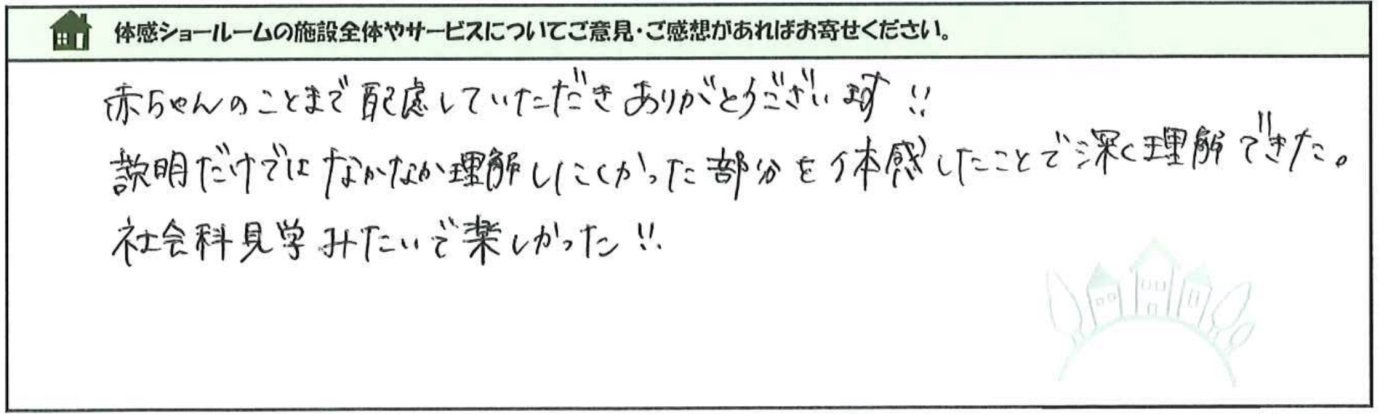 体感ショールームの施設全体やサービスについてご意見・ご感想があればお寄せください。
赤ちゃんのことまで配慮していただきありがとうございます!!
説明だけではなかなか理解しにくかった部分を体感したことで深く理解できた。
社会科見学みたいで楽しかった!!